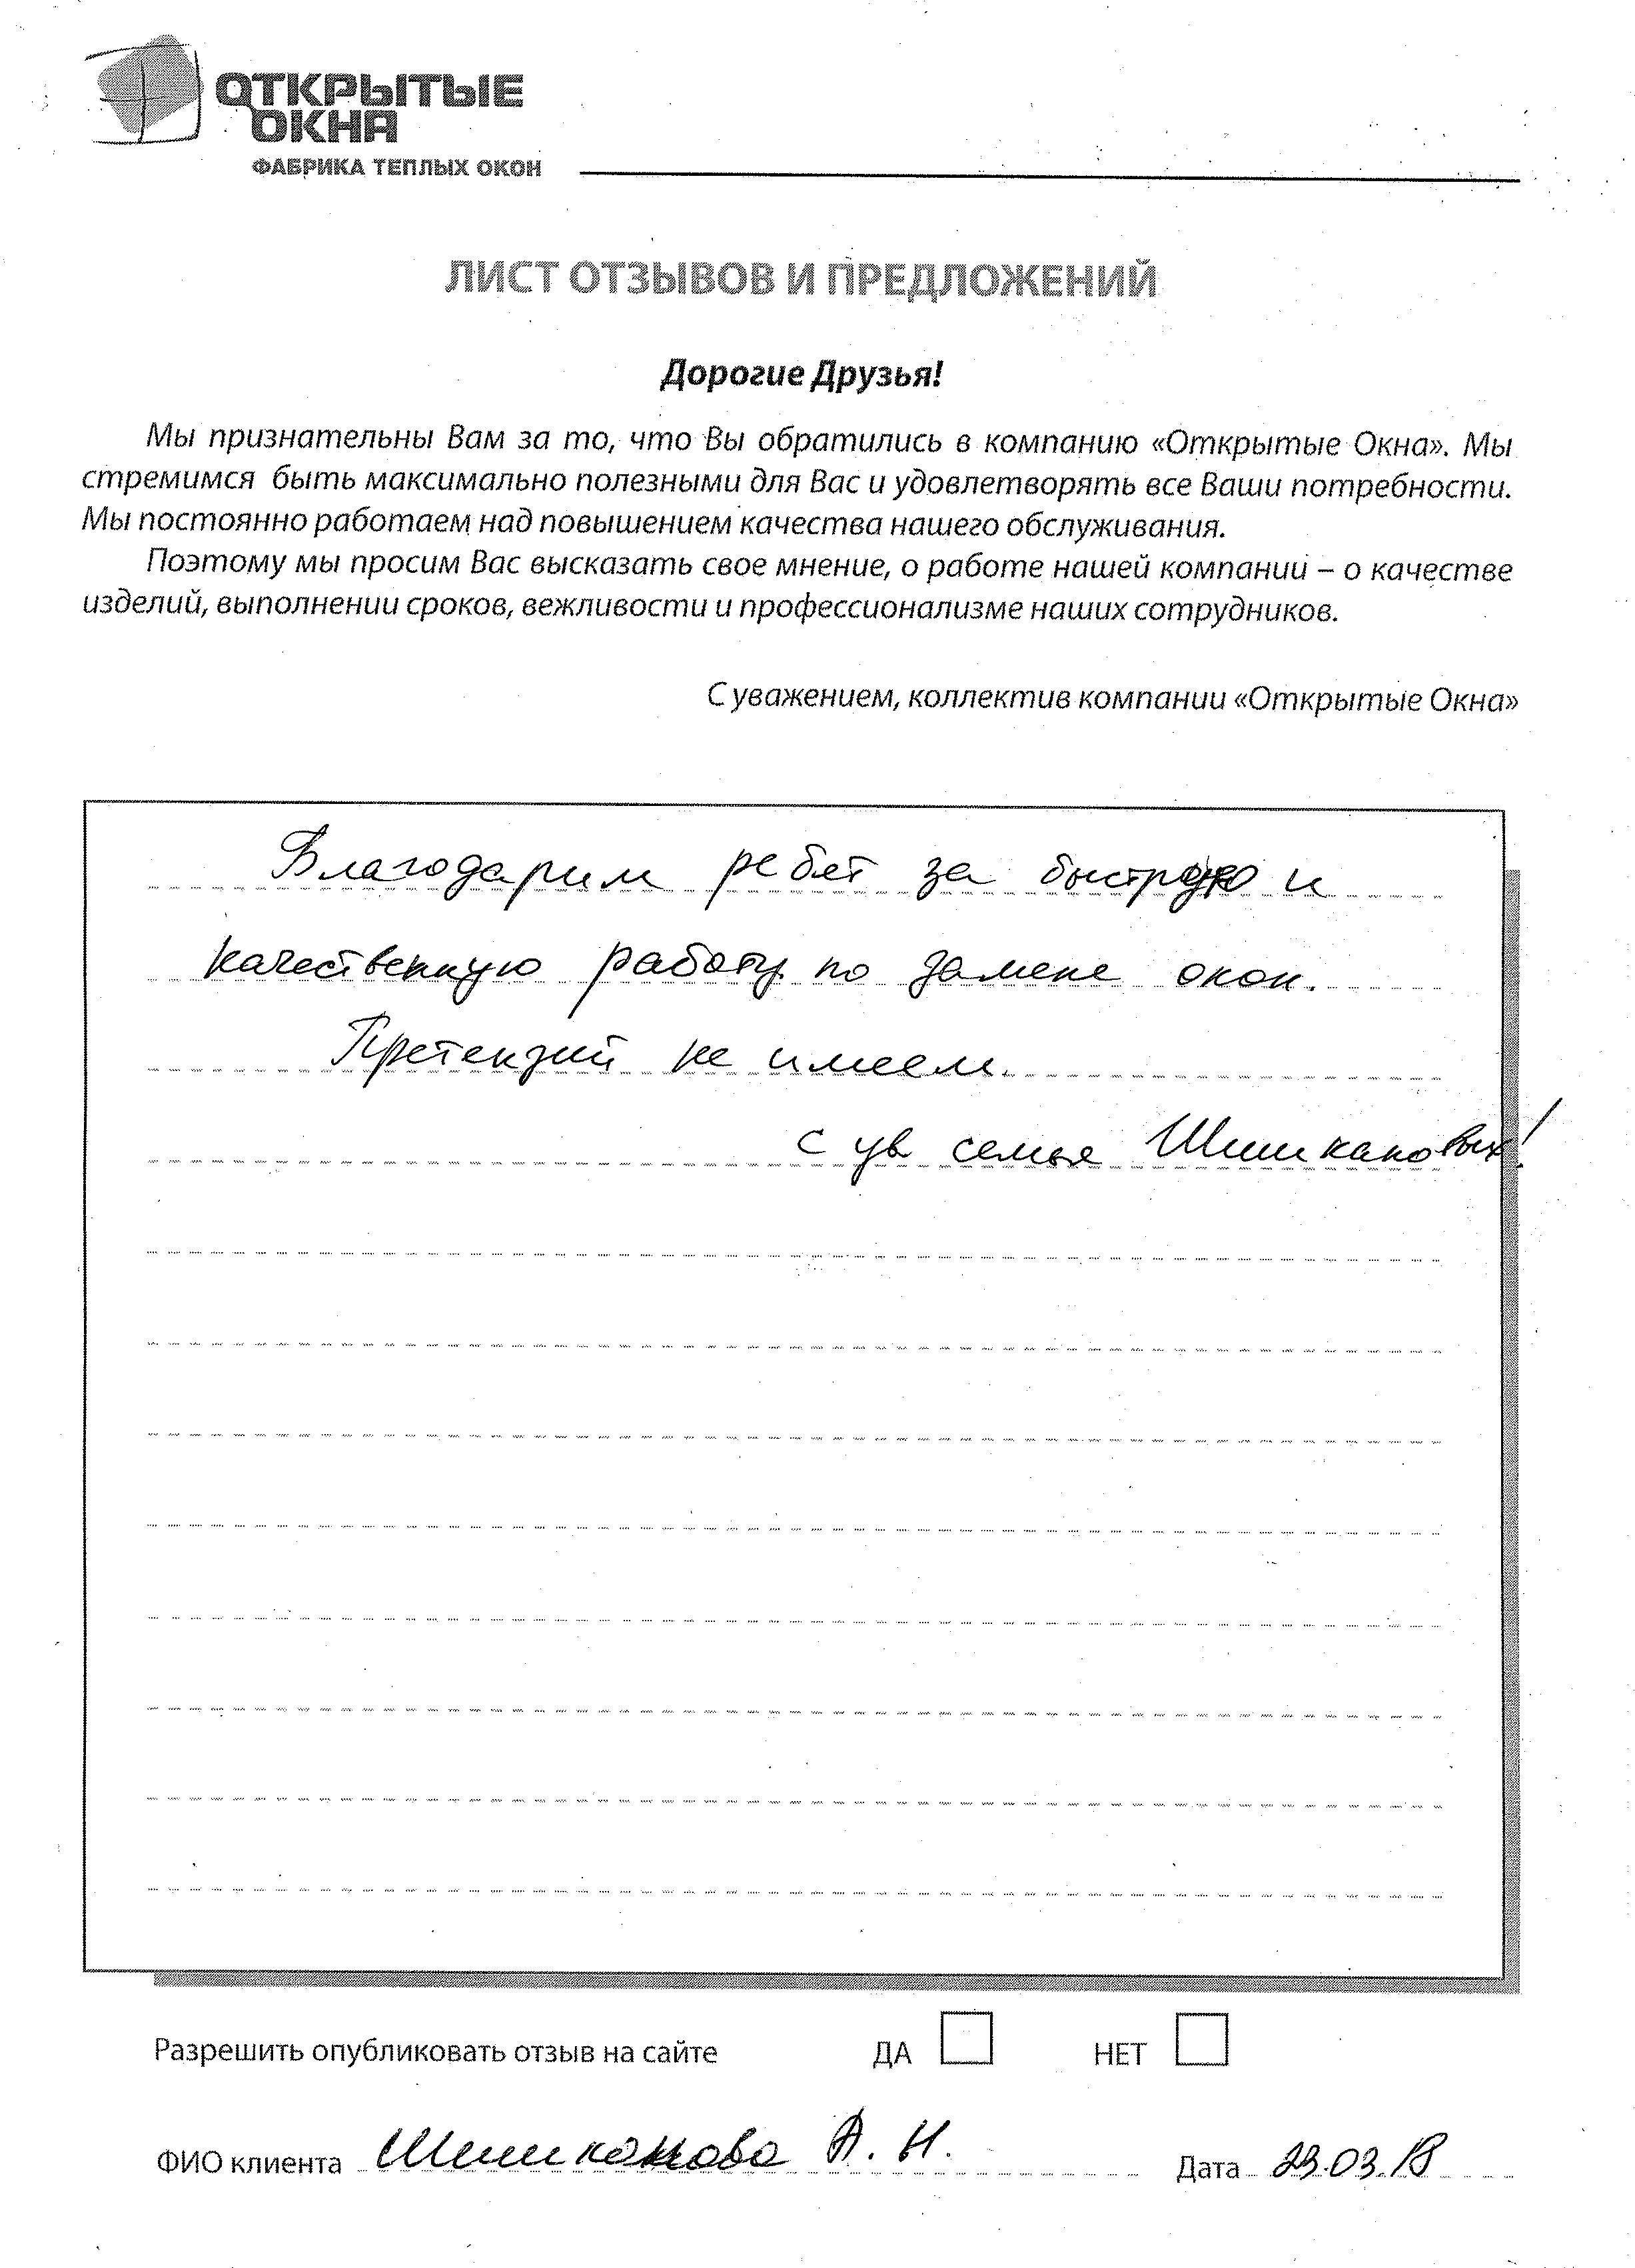 ОТКРЫТЫЕ
ОКНА
ФАБРИКА ТЕПЛЫХ ОКОН
ЛИСТ ОТЗЫВОВ И ПРЕДЛОЖЕНИЙ
Дорогие Друзья!
Мы признательны Вам за то, что Вы обратились в компанию «Открытые Окна». Мы
стремимся быть максимально полезными для Вас и удовлетворять все Ваши потребности.
Мы постоянно работаем над повышением качества нашего обслуживания.
Поэтому мы просим Вас высказать свое мнение, о работе нашей компании – о качестве
изделий, выполнении сроков, вежливости и профессионализме наших сотрудников.
С уважением, коллектив компании «Открытые Окна»
Благодарим ребят за быструю и
качественную работу по замене окон.
Претензий не имеем.
с ув семья Шишкановых!
Разрешить опубликовать отзыв на сайте ДА НЕТ
ФИО клиента Шишканова А. Н. Дата